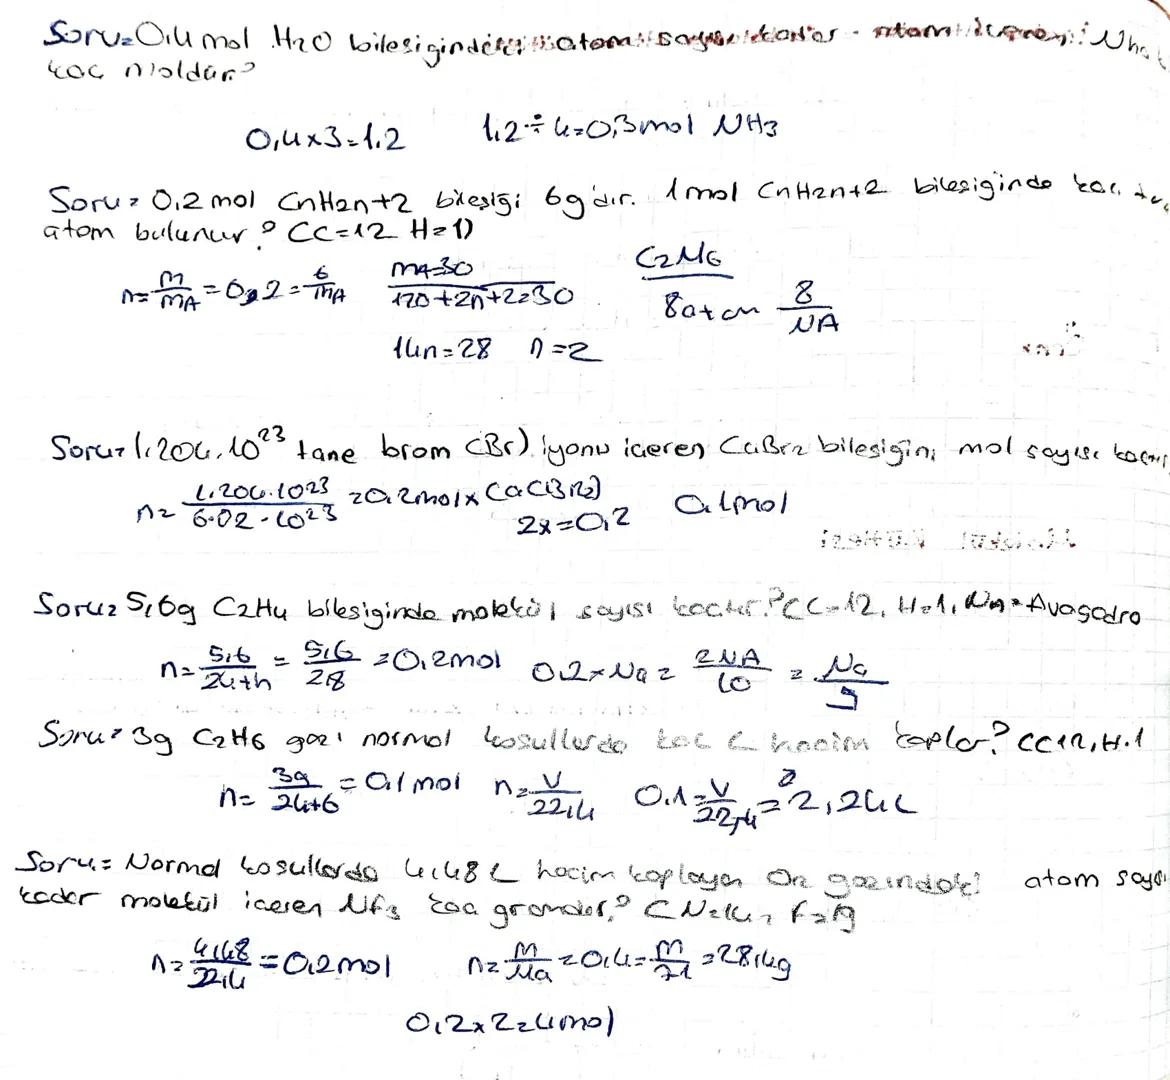 Soru= 0,4 mol H2O bilesigindeki atom sayısı kadar atom iceren Nh
kac moldür?
0,4x3=1.2 1.2÷4=0,3mol NH3
Soru= 0.2 mol CnH2n+2 bileşiği 6g'dır. 1mol CnH2n+2 bilesiginde kac
atom bulunur? (C=12 H=1)
n=m/mA=0,2=6/mA mA=30 C2H6
120+2n+2=30 8atom 8/NA
14n=28 n=2
Soru= 1.204.10^23 tane brom (Br) iyonu iceren CaBr2 bilesigini mol sayısı kactır
n= 1.204.1023/6.02.1023 =0.2molx Ca(BR2) 0.1mol
2x=0,2
Soru= 5,6g C2H4 bilesiginde molekül sayısı kactır? (C=12, H=1, NA=Avagadro
n= 5,6/24+h = 5,6/28 =0,2mol 0.2xNa= 2NA/10 = Na/5
Soru= 3g C2H6 gazı normal kosullarda kac L hacim kaplar? (C12, H.1
n= 3g/24+6 =0,1mol n=V/22,4 0.1=V/22,4 = 2,24L
Soru= Normal kosullarda 4,48 L hacim kaplayan O2 gazındaki atom sayısı
kadar molekül iceren Nf3 kac gramdır? (N=14, F=19
n= 4,48/22,4 =0,2mol n= m/Ma =0,4= m/71 =28,4g
0,2x2=4mol